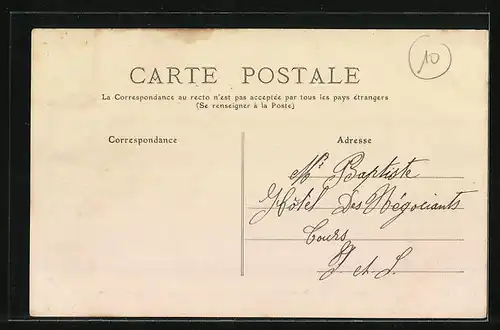 10
CARTE POSTALE
La Correspondance au recto n'est pas acceptée par tous les pays étrangers
(Se renseigner à la Poste)
Correspondance
Adresse
Mr Baptiste
Hôtel Des Négociants
Tours
I et L.